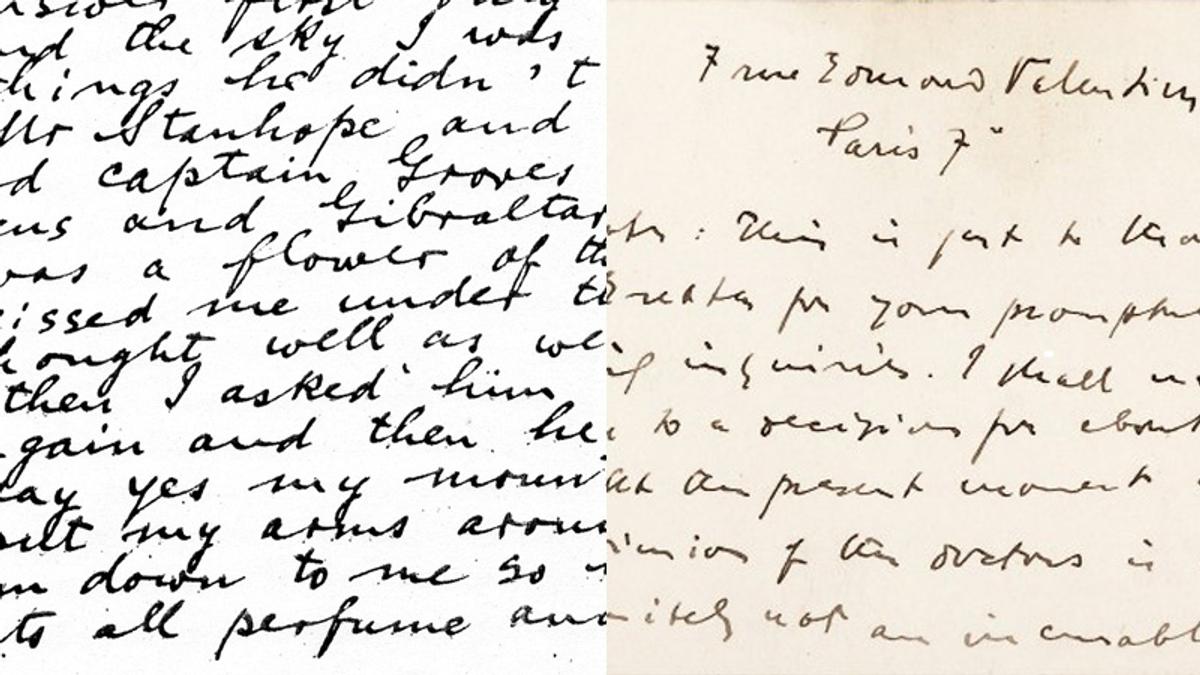 first
and the sky I was
things he didn't
Mr Stanhope and
d captain Groves
eus and Gibraltar
was a flower of th
kissed me under t
thought well as we
then I asked him
gain and then he
say yes my moun
put my arms aroun
m down to me so
ts all perfume and
7 rue Edmond Valentin
Paris 7e
: This is just to tha
for your prompt
inquiries. I shall
to a decision for about
At the present moment
inion of the doctors is
nitely not an incurabl